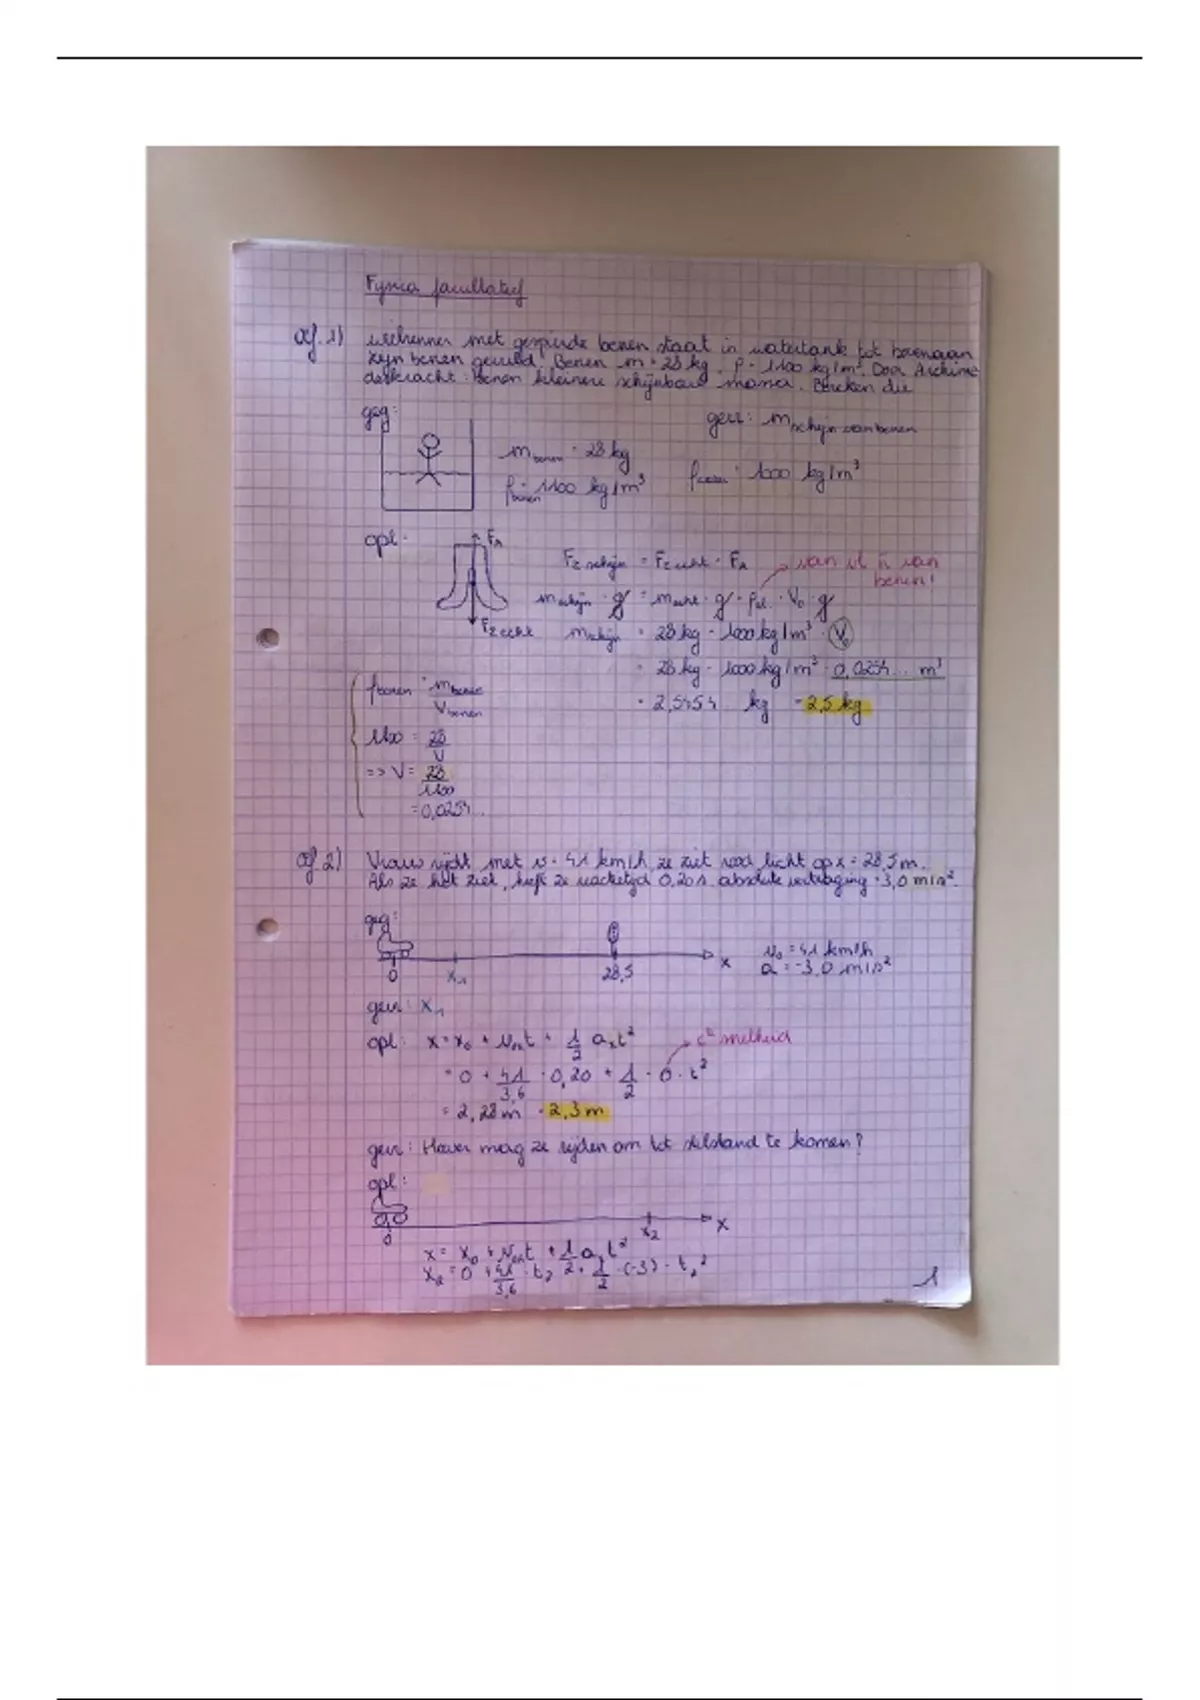 Fysica facultatief
Oef. 1) wielrenner met gespierde benen staat in watertank tot bovenaan
zijn benen gevuld. Benen m = 28 kg, ρ = 1100 kg/m³. Door Archime
deskracht: benen kleinere schijnbare massa. Bereken die
geg: gevr: m schijn van benen
m benen = 28 kg
ρ benen = 1100 kg/m³ ρ water = 1000 kg/m³
opl: FA Fz schijn = Fz echt - FA → van vl n van
benen!
m schijn · g = m echt · g - ρvl · Vo · g
Fz echt m schijn = 28 kg - 1000 kg/m³ · Vo
= 28 kg - 1000 kg/m³ · 0,0254... m³
ρ benen = m benen / V benen
= 2,5454 kg = 2,5 kg
1100 = 28 / V
=> V = 28 / 1100
= 0,0254...
Oef 2) Vrouw rijdt met v = 41 km/h, ze ziet rood licht op x = 28,5 m.
Als ze het ziet, heeft ze reactietijd 0,20 s. absolute vertraging = 3,0 m/s².
geg:
v₀ = 41 km/h
0 x₁ 28,5 x a = -3,0 m/s²
gevr: x₁
opl: x = x₀ + v₀ₓt + 1/2 aₓt² → cᵗᵉ snelheid
= 0 + 41/3,6 · 0,20 + 1/2 · 0 · t²
= 2,28 m = 2,3 m
gevr: Hoever mag ze rijden om tot stilstand te komen?
opl:
0 x₂ x
x = x₀ + v₀ₓt + 1/2 aₓt²
x₂ = 0 + 41/3,6 · t₂ + 1/2 · (-3) · t₂²
1